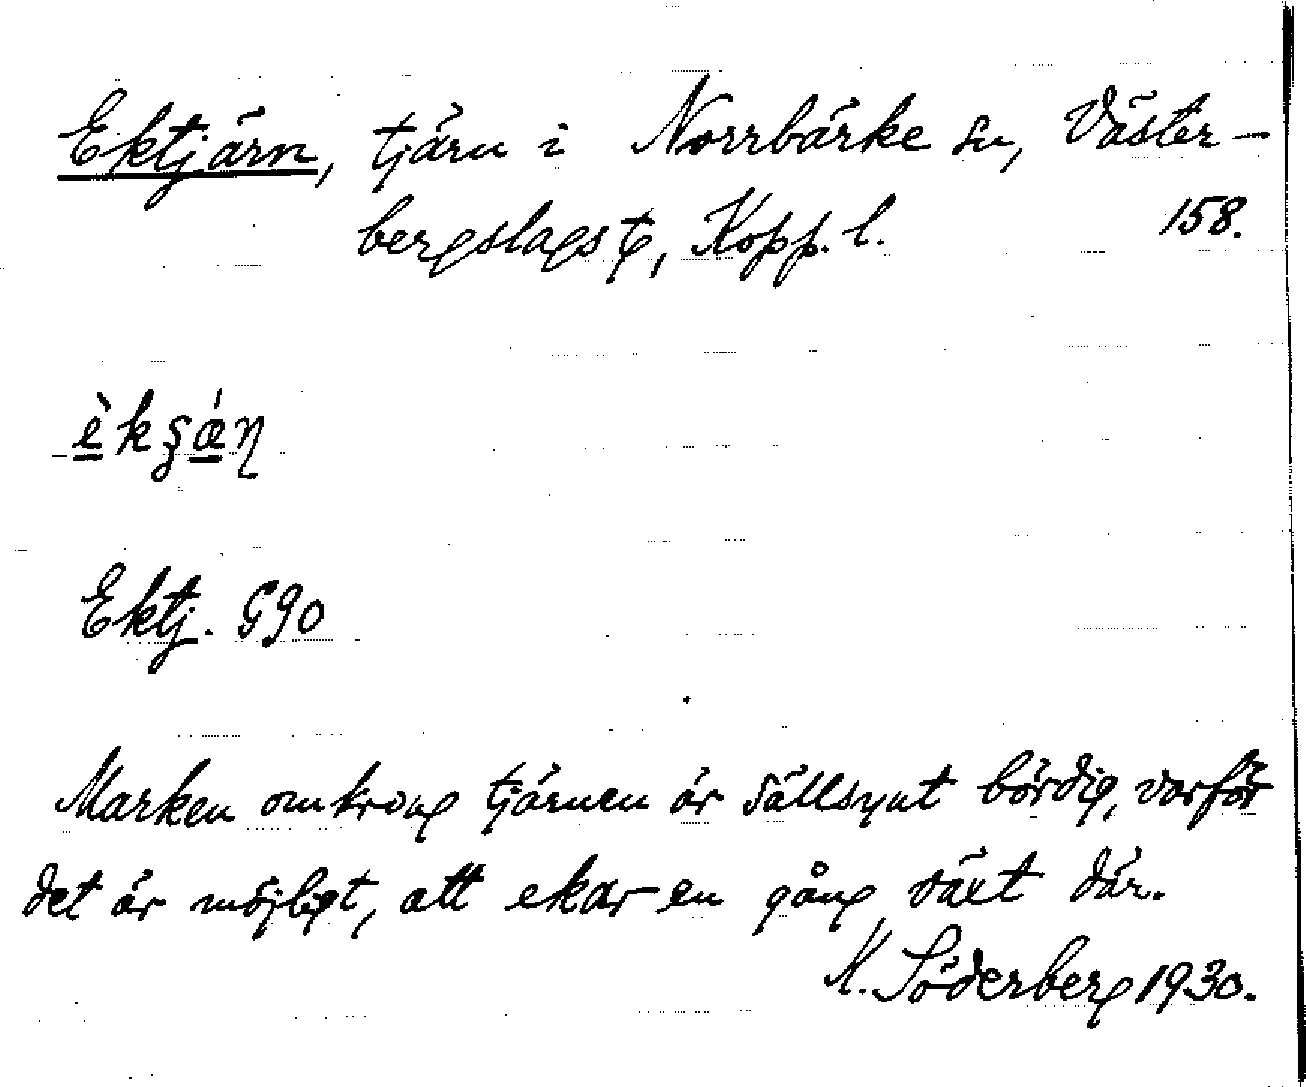 Ektjärn, tjärn i Norrbärke sn, Väster-
bergslags t, Kopp. l. 158.
Ektj. G90
Marken omkring tjärnen är sällsynt bördig, varför
det är möjligt, att ekar en gång växt där.
K. Söderberg 1930.